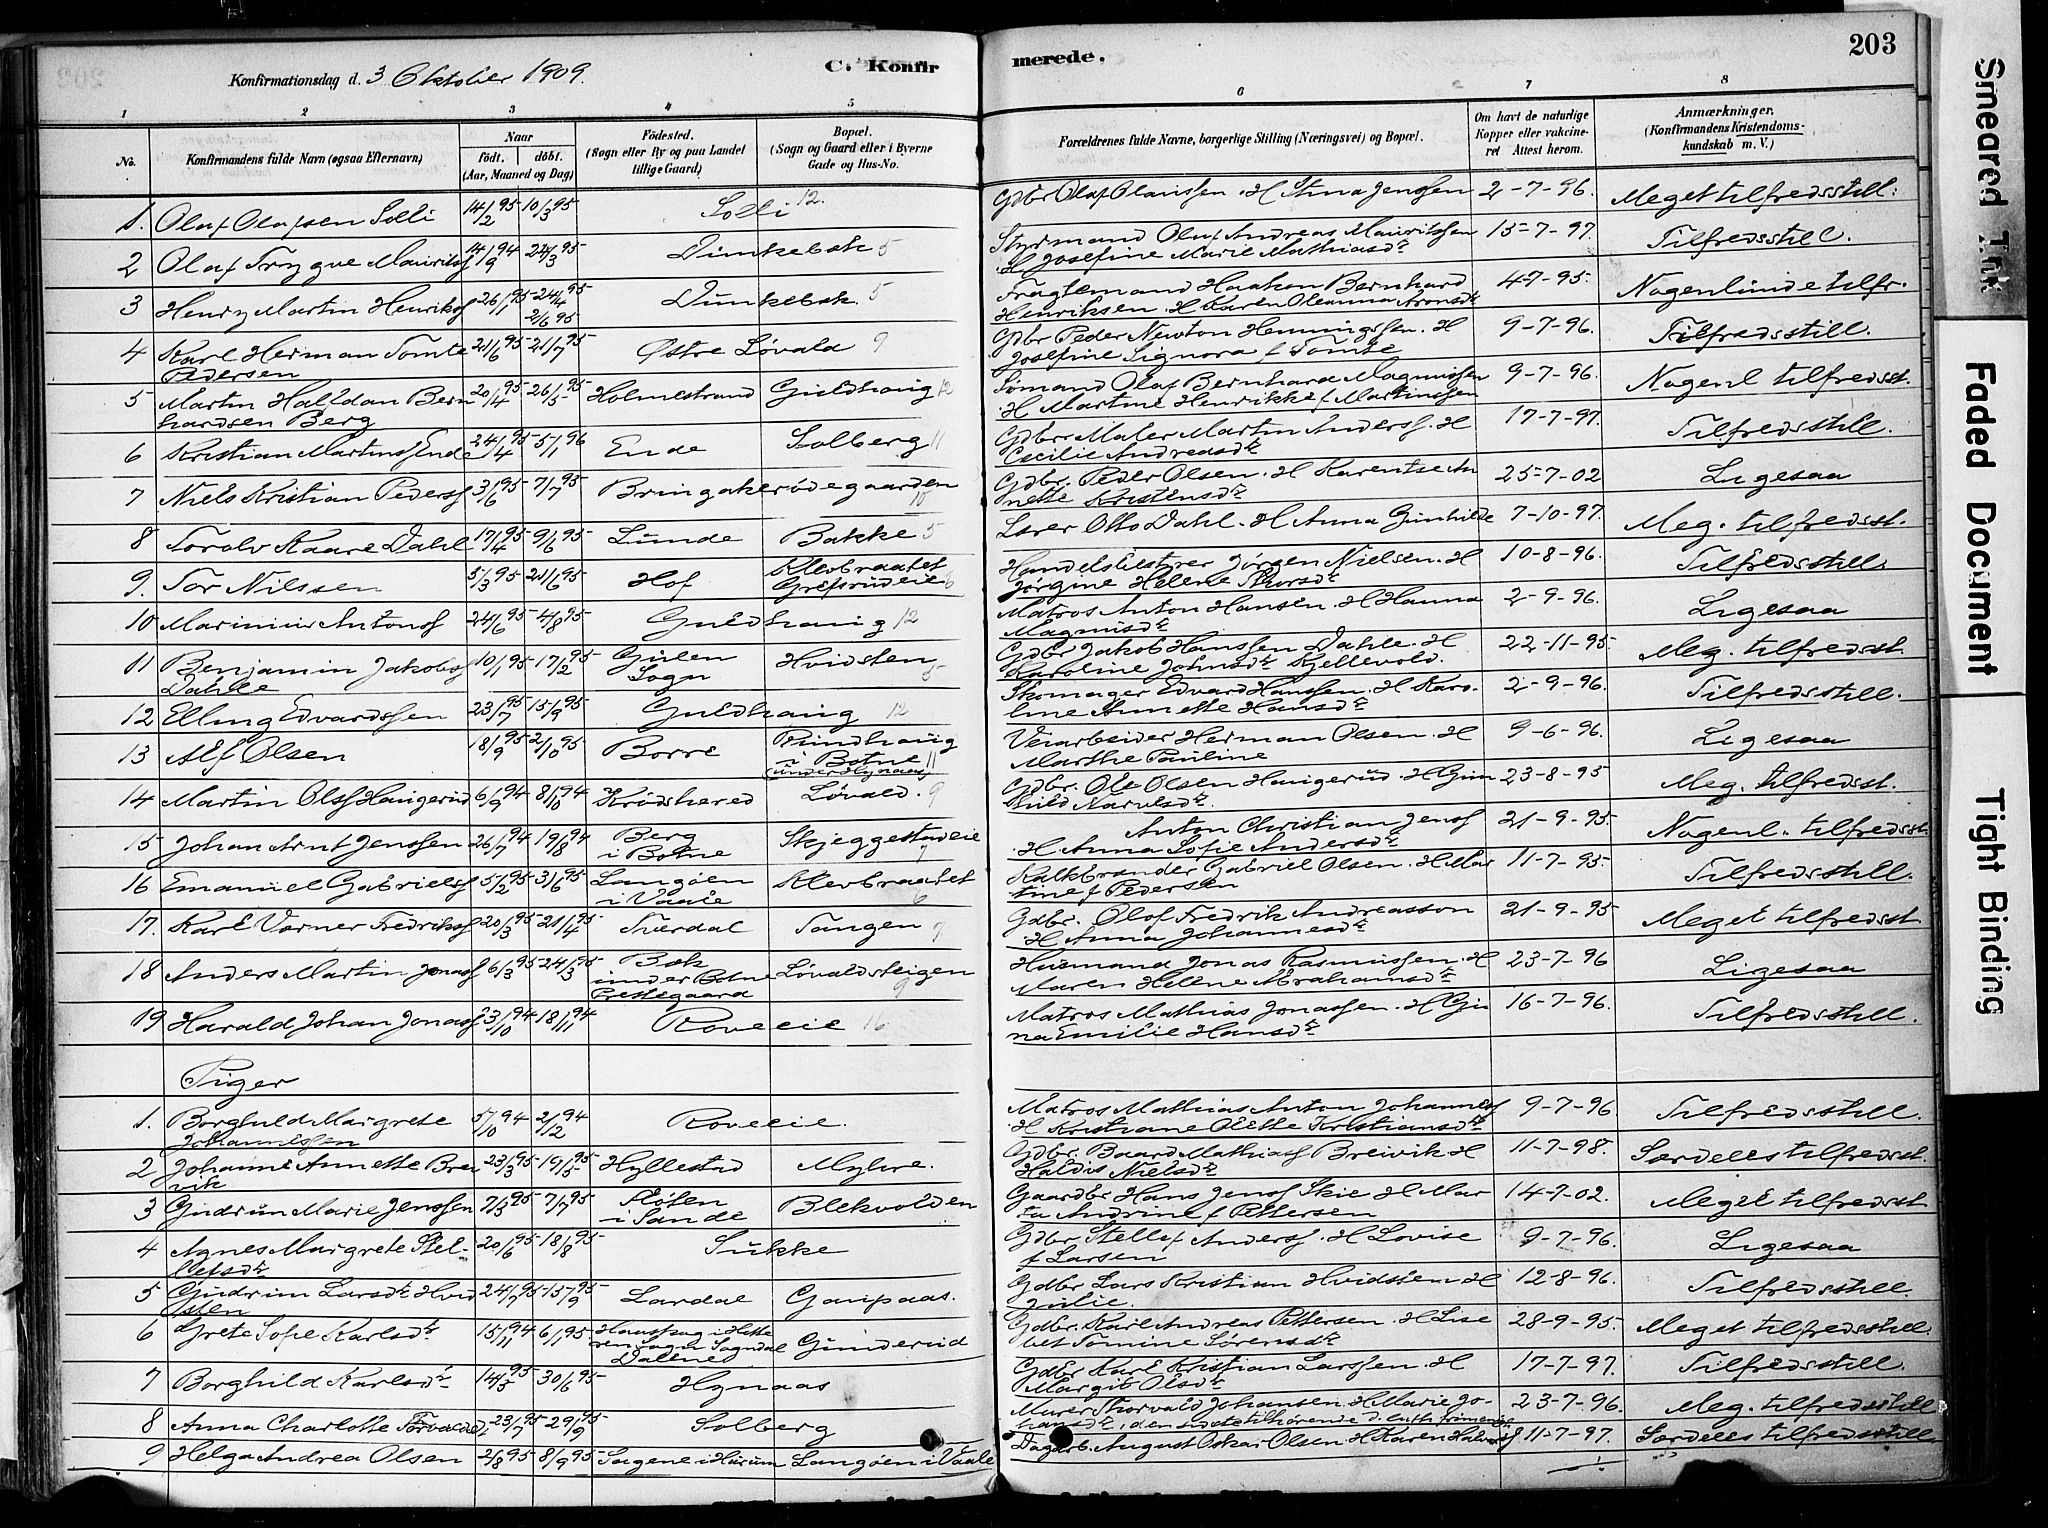 Konfirmationsdag d. 3 Oktober 1909. C. Konfir merede. 203
1 2 3 4 5 6 7 8
No. Konfirmandens fulde Navn (ogsaa Efternavn) Naar født, døbt. (Aar, Maaned og Dag) Fødested. (Sogn eller By og paa Landet tillige Gaard) Bopæl. (Sogn og Gaard eller i Byerne Gade og Hus-No. Forældrenes fulde Navne, borgerlige Stilling (Næringsvei) og Bopæl. Om havt de naturlige Kopper eller vakcineret Attest herom. Anmærkninger. (Konfirmandens Kristendomskundskab m. V.)
1. Olaf Olafsen Solli 14/2 95 10/3 95 Solli 12. Gdbr Olaf Olaussen. H Stina Jenssen 2-7-96. Meget tilfredsstill.
2 Olaf Trygve Mauritsf 14/9 94 24/3 95 Dunkebek 5 Styrmand Olaf Andreas Mauritssen H Josefine Marie Mathiasdtr 13-7-97. Tilfredsstill.
3 Henry Martin Henriksf 26/1 95 24/4 95 Dunkebek. 5 Fragtemand Haakon Bernhard Henriksen. H Karen Oleanna Aronsdtr 4-7-95. Nogenlunde tilfr.
4 Karl Herman Tomte Pedersen 21/6 95 21/7 95 Østre Løvald 9 Gdbr Peder Newton Hemmingssen. H Josefine Signora f Tomte 9-7-96. Tilfredsstill.
5 Martin Halfdan Bernhardsen Berg 20/4 95 26/5 95 Holmestrand Guldhaug 12 Sømand Olaf Bernhard Magnussen H Martine Henrikke f Martinssen 9-7-96. Nogenl tilfredsst.
6 Kristian Martinsf Ende 24/4 95 5/1 96 Ende Solberg 11 Gdbr Maler Martin Andersf. H Cecilie Andreasdtr 17-7-97. Tilfredsstill.
7 Niels Kristian Pedersf 3/6 95 7/7 95 Bringakerødegaarden 10 Gdbr. Peder Olsen. H Karentse Annette Kristensdtr 25-7-02 Ligesaa
8 Torolv Kaare Dahl 17/4 95 9/6 95 Lunde Bakke 5 Lærer Otto Dahl. H Anna Gunhilde 7-10-97. Meg. tilfredsst.
9. Tor Nilssen 5/3 95 21/6 95 Hof Klevbraatet Grefsrudeie 6 Handelsbestyrer Jørgen Nielsen. H Jørgine Helene Thorsdtr 10-8-96. Tilfredsstill.
10 Marinius Antonsf 24/6 95 4/8 95 Guldhaug 12 Matros Anton Hansen. H Hanna Magnusdtr 2-9-96. Ligesaa
11 Benjamin Jakobsf Dahle 10/1 95 17/2 95 Gulen Sogn Hvidsten 5 Gdbr Jakob Hanssen Dahle. H Karoline Johnsdtr Kjellevold. 22-11-95. Meg. tilfredsst.
12 Elling Edvardssen 23/7 95 15/9 95 Guldhaug 12 Skomager Edvard Hanssen. H Karoline Annette Hansdtr 2-9-96. Tilfredsstill.
13 Alf Olsen 18/9 95 2/10 95 Borre Rundhaug i Botne (under Hynaas) 11 Verarbeider Herman Olsen. H Marthe Pauline 9-6-96. Ligesaa
14 Martin Olsf Haugerud 6/9 94 8/10 94 Krødshered Løvald. 9 Gdbr. Ole Olsen Haugerud. H Gunhild 23-8-95 Meg. tilfredsst.
15 Johan Arnt Jenssen 26/7 94 19/8 94 Berg i Botne Skjeggestadeie Anton Christian Jensf H Anna Sofie Andersdtr 21-9-95. Nogenl. tilfredsst.
16 Emanuel Gabrielsf 5/2 95 3/6 95 Langøen i Vaale Klevbraatet 6 Kalkbrænder Gabriel Olsen. H Martine f Pedersen 11-7-95. Tilfredsstill.
17. Karl Verner Fredriksf 20/3 95 21/4 95 Sverdal Tangen 9 Gdbr. Olof Fredrik Andreasson H Anna Johannesdtr 21-9-95 Meget tilfredsst
18 Anders Martin Jonasf 6/3 95 24/3 95 Bek under Botne Prestegaard Løvaldsteigen 9 Husmand Jonas Rasmussen. H Maren Helene Abrahamsdtr 23-7-96 Ligesaa
19 Harald Johan Jonasf 23/10 94 18/11 94 Roveeie 16 Matros Mathias Jonassen. H Gina Emilie Hansdtr 16-7-96. Tilfredsstill.
Piger
1. Borghild Margrete Johannessen 5/10 94 2/12 94 Roveeie. Matros Mathias Anton Johannesf H Kristiane Olette Kristiansdtr 9-7-96. Tilfredsstill.
2 Johanne Annette Breivik 23/3 95 19/5 95 Hyllestad Myhre. Gdbr. Baard Mathiasf Breivik H Haldis Nielsdtr 11-7-98. Særdeles tilfredsst.
3 Gudrun Marie Jenssen 7/3 95 7/7 95 i Sande Blekvolden Gaardbr Hans Jensf Skie H Marta Andrine f Pettersen 14-7-02. Meget tilfredsst
4 Agnes Margrete Stellefsdtr 20/6 95 18/8 95 Sukke Gdbr Stellef Andersf. H Lovise f Larsen 9-7-96. Ligesaa
5 Gudrun Larsdtr Hvidsten 24/7 95 15/9 95 Lardal Gaupaas. Gdbr Lars Kristian Hvidssten H Julie. 12-8-96. Tilfredsstill.
6 Grete Sofie Karlsdtr 15/11 94 6/1 95 Haugsrag i Hetteren Sogn Sogndal Dalene Gunderud Gdbr. Karl Andreas Pettersen. H Lisebet Tomine Sørensdtr 28-9-95. Meget tilfredsstill.
7 Borghild Karlsdtr 14/5 95 30/6 95 Hynaas Gdbr Karl Kristian Larssen. H Margit Olsdtr 17-7-97. Tilfredsstill.
8 Anna Charlotte Torvaldsd 23/7 95 29/9 95 Solberg Murer Thorvald Johansen. H Marie Johansdtr, den sidste tilhørende d. luth frimenig. 23-7-96. Meg. tilfredsstill
9 Helga Andrea Olsen 2/8 95 8/9 95 Sagene i Hurum Langøen i Vaale Dagarb. August Oskar Olsen. H Karen Halvorsf 11-7-97. Særdeles tilfredsstill
Smeared Ink
Faded Document
Tight Binding